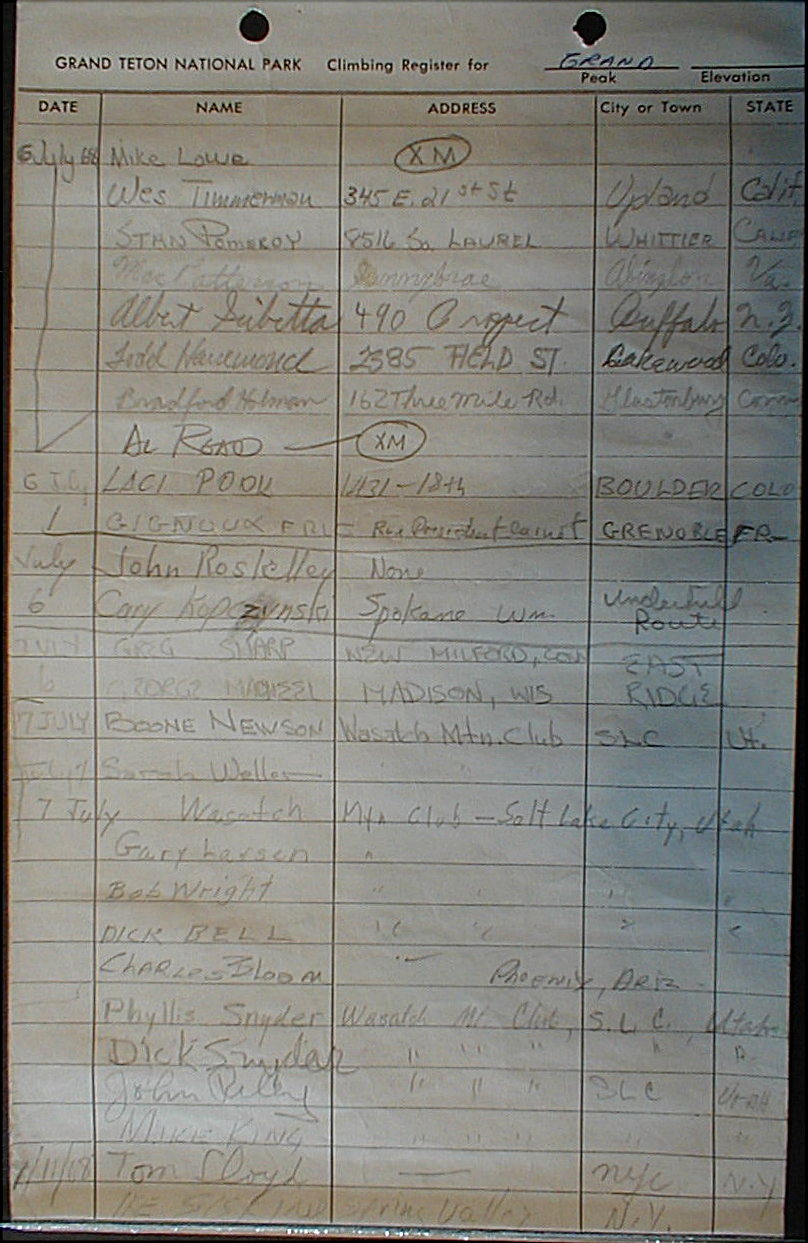 GRAND TETON NATIONAL PARK Climbing Register for GRAND
Peak Elevation
DATE NAME ADDRESS City or Town STATE
6 July 68 Mike Lowe XM
Wes Timmerman 345 E. 21st St Upland Calif
STAN POMEROY 8516 So. LAUREL WHITTIER CALIF
Mac Patterson Sunnybrae Abington Va.
Albert 490 Prospect Buffalo N.Y.
Todd 2385 FIELD ST. Lakewood Colo.
Bradford Holman 162 Three Mile Rd. Glastonbury Conn
AL READ XM
LACI 1431-18th BOULDER COLO
GIGNOUX Rue President GRENOBLE FR
July John Roskelley None
6 Cary Kopczynski Spokane Wn. Underhill
Route
JULY GREG SHARP NEW MILFORD, CON EAST
6 GEORGE MADISON, WIS RIDGE
7 JULY BOONE NEWSON Wasatch Mtn. Club SLC Ut.
July 7 Sarah " " "
7 July Wasatch Mtn Club - Salt Lake City, Utah
Gary Larsen "
Bob Wright " " " "
DICK BELL " " " "
CHARLES BLOOM Phoenix, Ariz
Phyllis Snyder Wasatch Mt. Club, S.L.C., Utah
Dick Snyder " " " " "
John " " " SLC UTAH
MIKE KING " " " " "
7/11/68 Tom Lloyd nyc N.Y
Spring Valley N.Y.